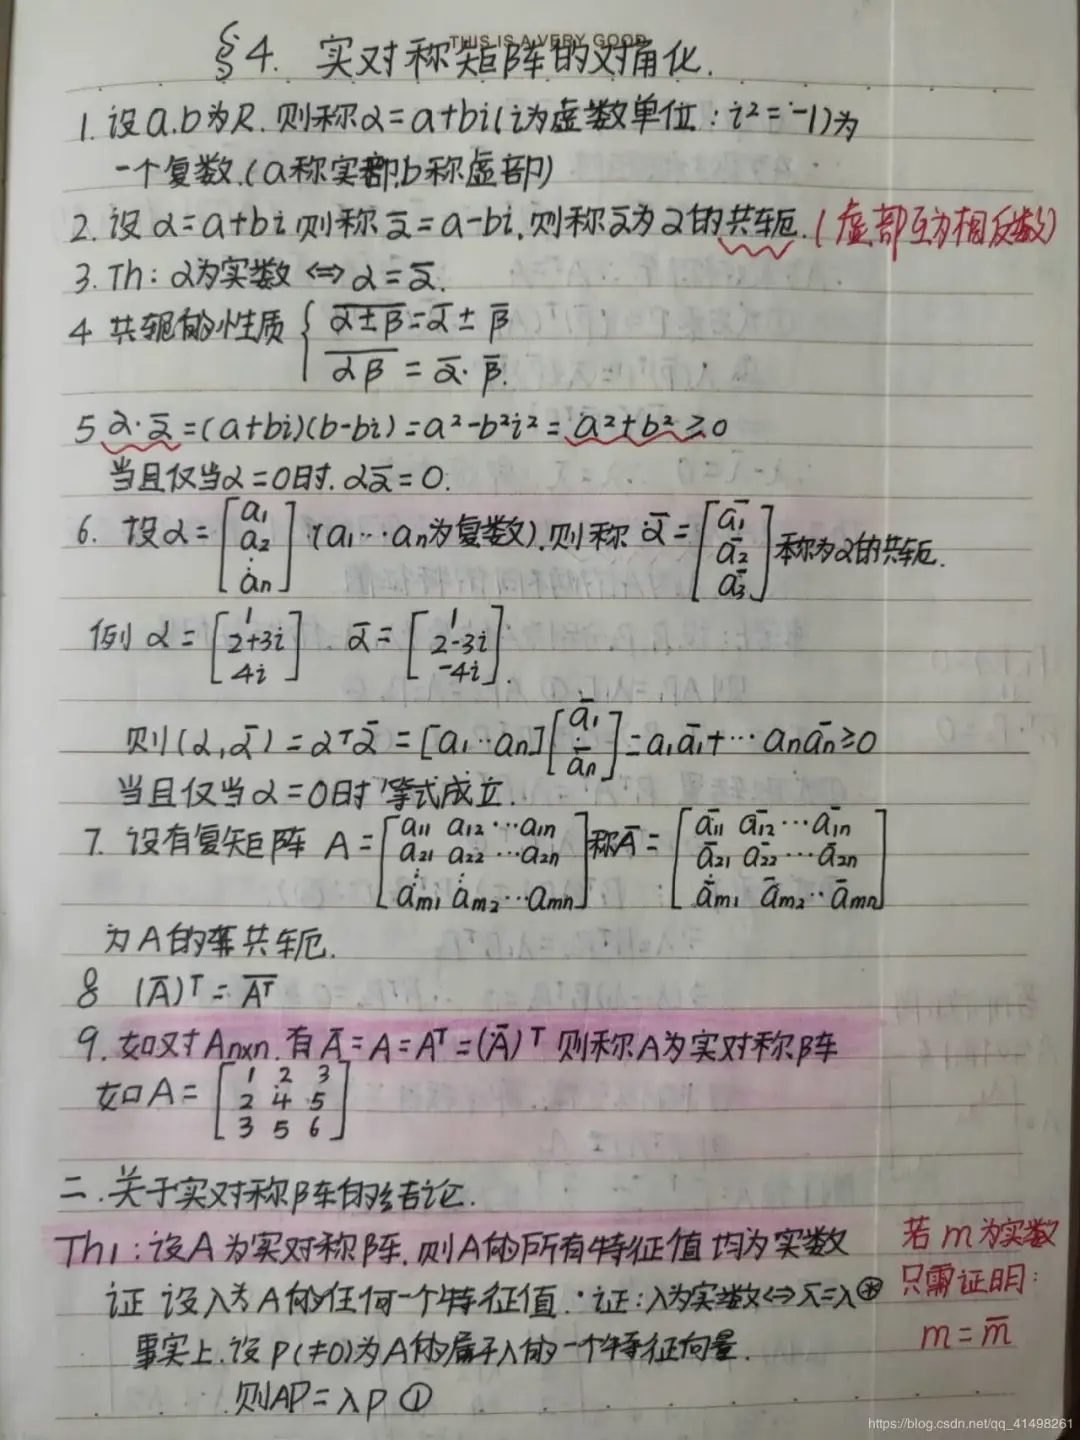 THIS IS A VERY GOOD
§4. 实对称矩阵的对角化.
1. 设a.b为R.则称α=a+bi(i为虚数单位:i²=-1)为
一个复数.(a称实部,b称虚部)
2. 设α=a+bi,则称ᾱ=a-bi,则称ᾱ为α的共轭.(虚部互为相反数)
3. Th: α为实数⇔α=ᾱ.
4 共轭的性质 { \overline{α±β}=ᾱ±β̄
\overline{αβ}=ᾱ·β̄.
5 α·ᾱ=(a+bi)(b-bi)=a²-b²i²=a²+b²≥0
当且仅当α=0时.αᾱ=0.
6. 设α=[a₁ a₂ ⋮ an] (a₁…an为复数).则称 ᾱ=[ā₁ ā₂ ā₃]称为α的共轭.
例 α=[1 2+3i 4i] ᾱ=[1 2-3i -4i].
则(α,ᾱ)=αᵀᾱ=[a₁…an][ā₁ ⋮ ān]=a₁ā₁+…anān≥0
当且仅当α=0时 等式成立.
7. 设有复矩阵 A=[a₁₁ a₁₂…a₁n a₂₁ a₂₂…a₂n ⋮ am₁ am₂…amn]称Ā=[ā₁₁ ā₁₂…ā₁n ā₂₁ ā₂₂…ā₂n ām₁ ām₂…āmn]
为A的共轭.
8 (Ā)ᵀ=\overline{Aᵀ}
9. 如对An×n.有Ā=A=Aᵀ=(Ā)ᵀ 则称A为实对称阵
如A=[1 2 3
2 4 5
3 5 6]
二.关于实对称阵的结论.
Th1:设A为实对称阵.则A的所有特征值均为实数
若m为实数
证 设λ为A的任何一个特征值.证:λ为实数⇔λ̄=λ⊛
只需证明:
事实上.设P(≠0)为A的属于λ的一个特征向量.
m=m̄
则AP=λP ①
https://blog.csdn.net/qq_41498261